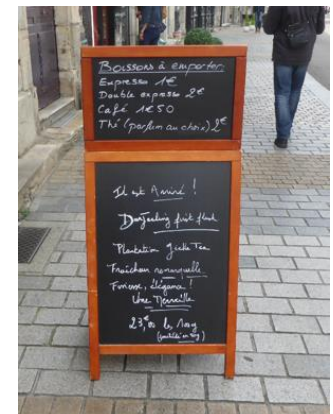 Boissons à emporter
Expresso 1€
Double expresso 2€
Café 1€50
Thé (parfum au choix) 2€
Il est Arrivé !
Darjeeling first flush
Plantation
Fraîcheur remarquable
Finesse, élégance !
Une Merveille
23,€00 les 100g